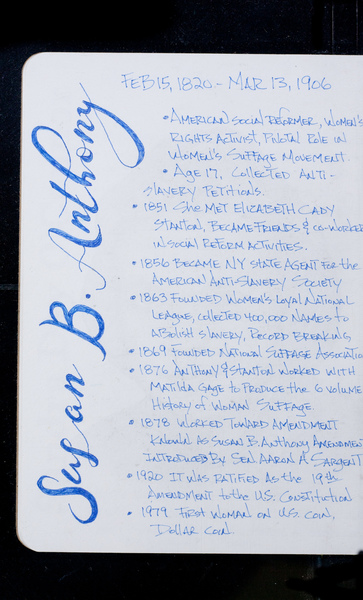 Susan B. Anthony
FEB 15, 1820 - MAR 13, 1906
• AMERICAN SOCIAL REFORMER, WOMEN'S
RIGHTS ACTIVIST, PIVOTAL ROLE IN
WOMEN'S SUFFAGE MOVEMENT.
• AGE 17, COLLECTED ANTI-
SLAVERY PETITIONS.
• 1851 SHE MET ELIZABETH CADY
STANTON, BECAME FRIENDS & CO-WORKER
IN SOCIAL REFORM ACTIVITIES.
• 1856 BECAME NY STATE AGENT FOR the
AMERICAN ANTI-SLAVERY SOCIETY
• 1863 FOUNDED WOMEN'S LOYAL NATIONAL
LEAGUE, COLLECTED 400,000 NAMES TO
ABOLISH SLAVERY, RECORD BREAKING
• 1869 FOUNDED NATIONAL SUFFAGE ASSOCIATIO
• 1876 ANTHONY & STANTON WORKED WITH
MATILDA GAGE TO PRODUCE THE 6 VOLUME
HISTORY OF WOMAN SUFFAGE.
• 1878 WORKED TOWARD AMENDMENT
KNOWN AS SUSAN B. ANTHONY AMENDMEN
INTRODUCED BY SEN. AARON A. SARGENT
• 1920 IT WAS RATIFIED AS the 19th
AMENDMENT to the U.S. CONSTITUTION
• 1979 FIRST WOMAN ON U.S. COIN,
DOLLAR COIN.